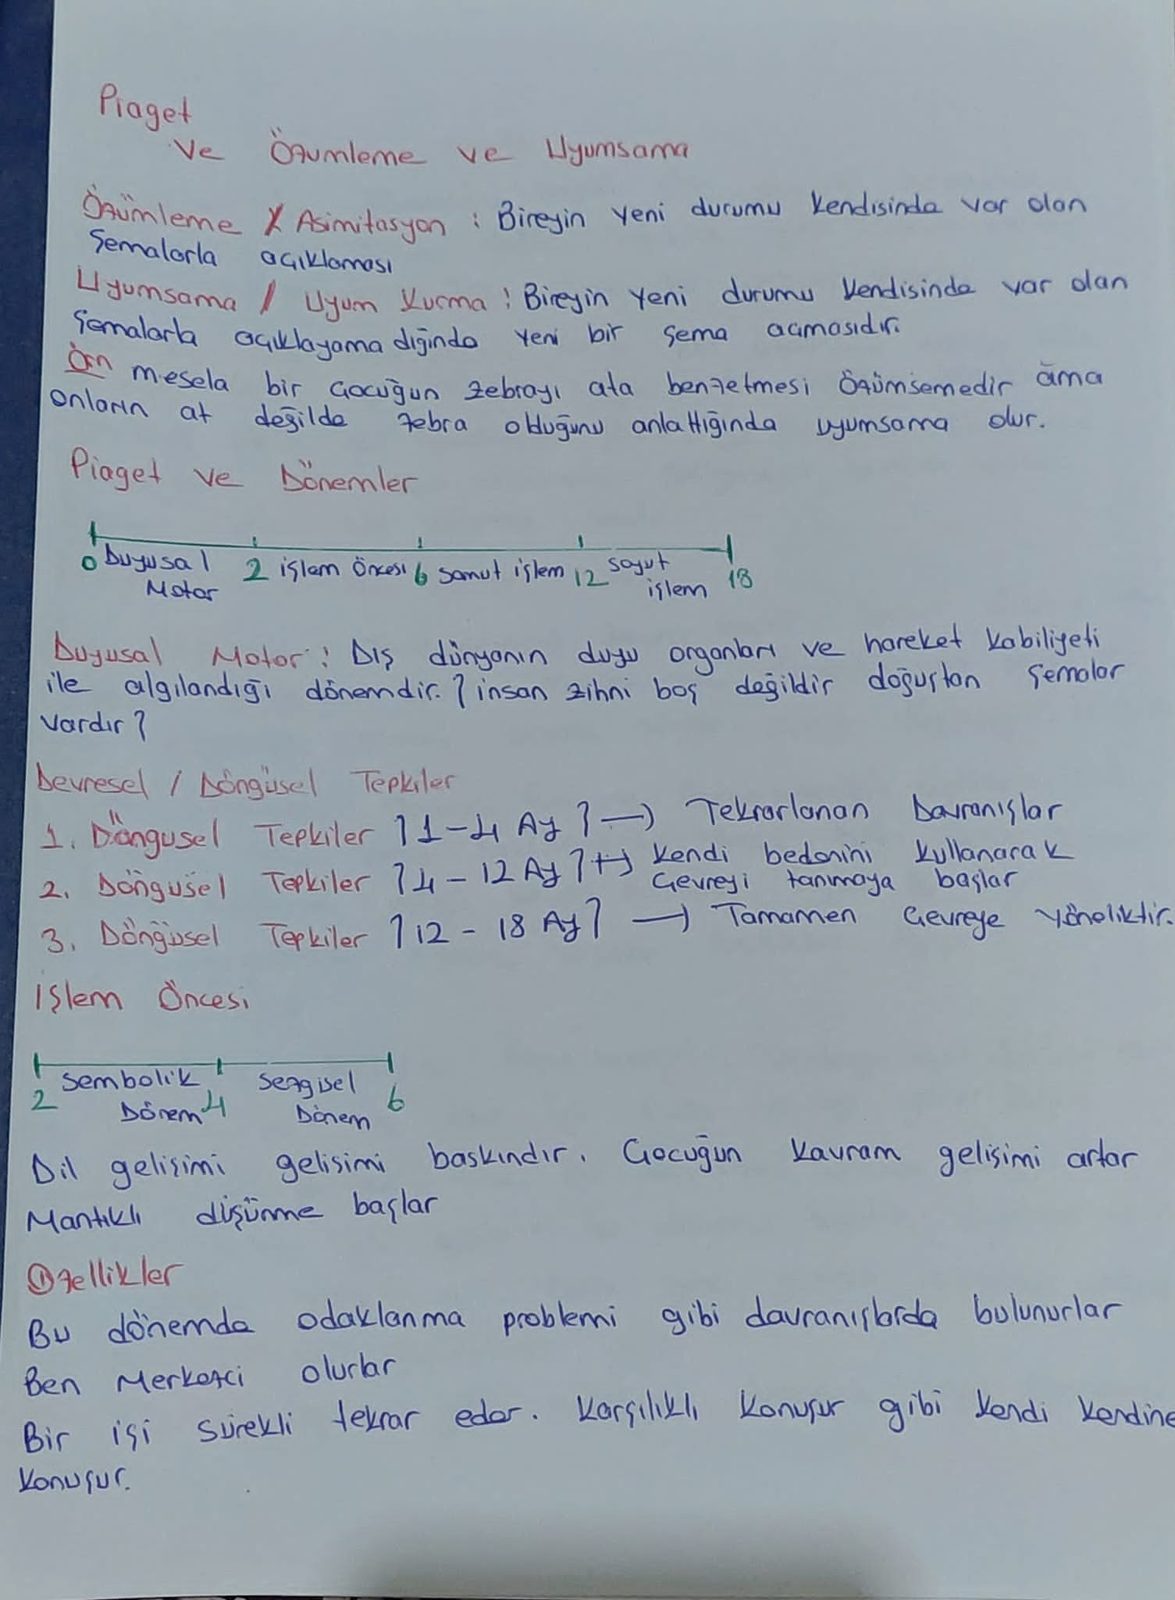 Piaget
Ve Özümleme ve Uyumsama
Özümleme / Asimitasyon : Bireyin yeni durumu kendisinde var olan
Şemalarla açıklaması
Uyumsama / Uyum Kurma : Bireyin yeni durumu kendisinde var olan
şemalarla açıklayamadığında yeni bir şema açmasıdır.
Örn mesela bir çocuğun zebrayı ata benzetmesi Özümsemedir ama
onların at değilde zebra olduğunu anlattığında uyumsama olur.
Piaget ve Dönemler
0 Duyusal 2 işlem Öncesi 6 somut işlem 12 soyut 18
Motor işlem
Duyusal Motor : Dış dünyanın duyu organları ve hareket kabiliyeti
ile algılandığı dönemdir. ? insan zihni boş değildir doğuştan şemalar
vardır ?
Devresel / Döngüsel Tepkiler
1. Döngüsel Tepkiler ? 1-4 Ay ? → Tekrarlanan Davranışlar
2. Döngüsel Tepkiler ? 4 - 12 Ay ? → Kendi bedenini kullanarak
Çevreyi tanımaya başlar
3. Döngüsel Tepkiler ? 12 - 18 Ay ? → Tamamen Çevreye Yöneliktir.
İşlem Öncesi
2 Sembolik 4 Sezgisel 6
Dönem Dönem
Dil gelişimi gelişimi baskındır. Çocuğun kavram gelişimi artar
Mantıklı düşünme başlar
Özellikler
Bu dönemde odaklanma problemi gibi davranışlarda bulunurlar
Ben Merkezci olurlar
Bir işi sürekli tekrar eder. Karşılıklı konuşur gibi kendi kendine
konuşur.